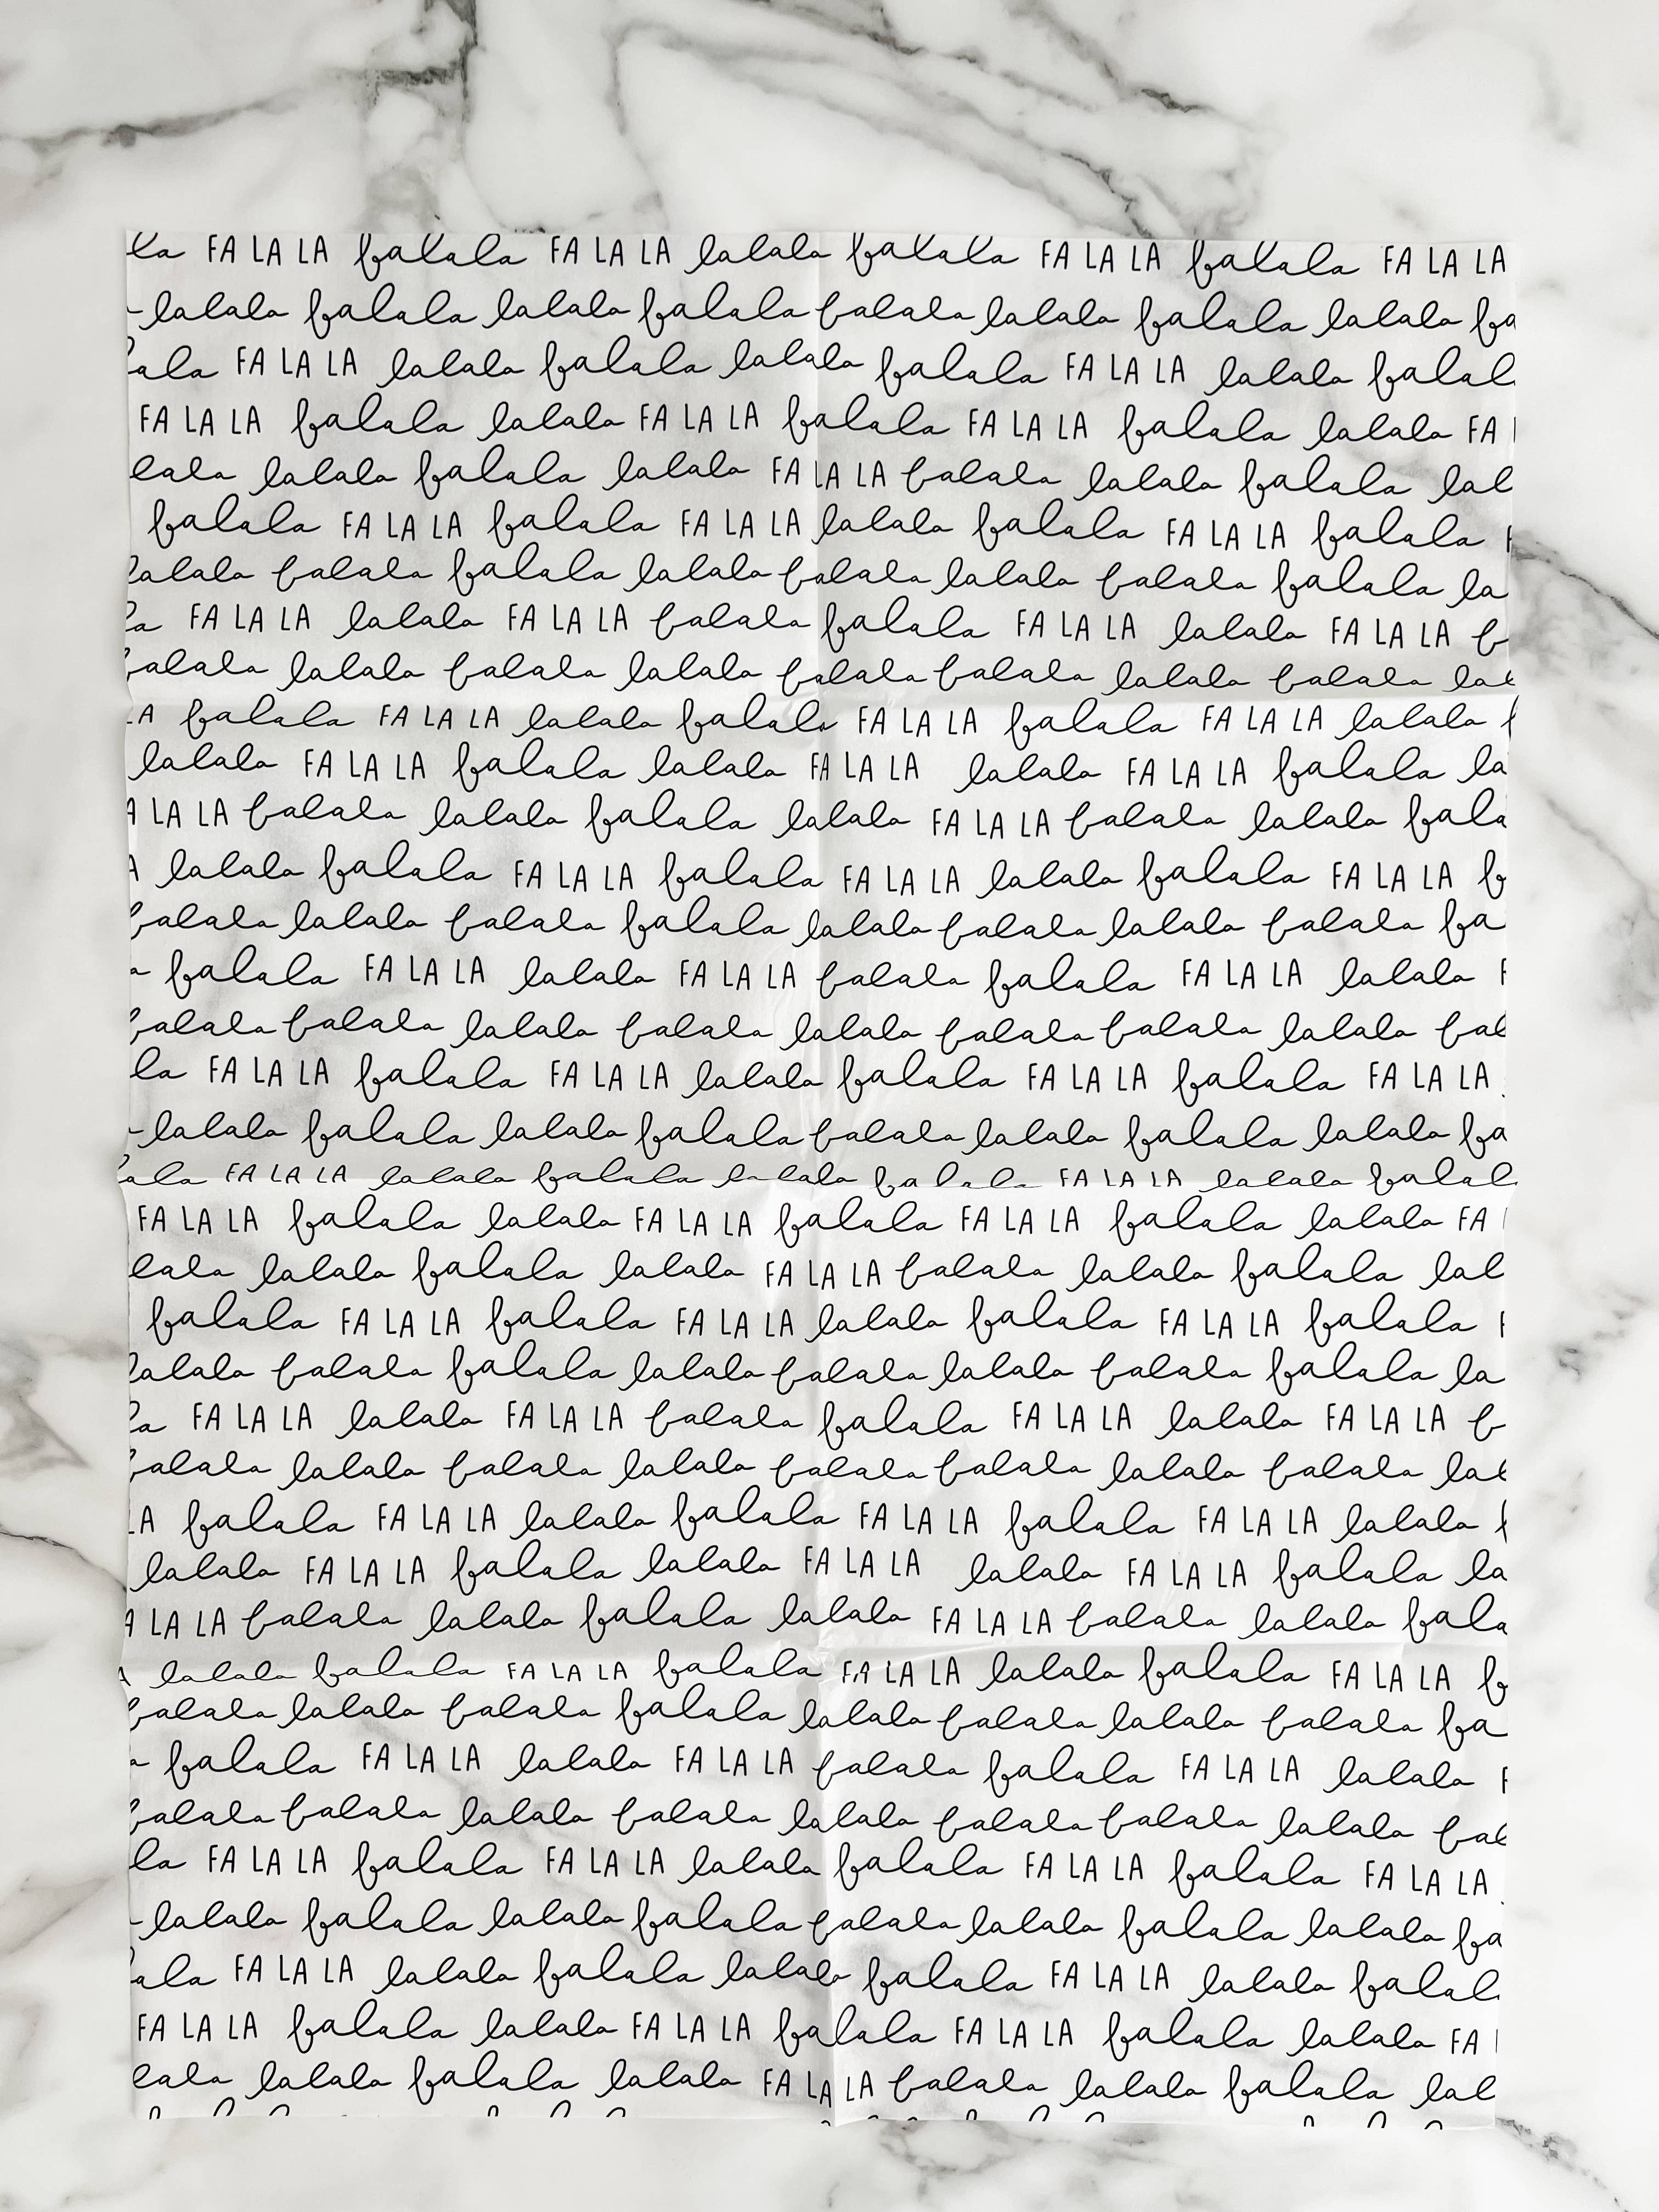 la FA LA LA falala FA LA LA lalala falala FA LA LA falala FA LA LA
lalala falala lalala falala falala lalala falala lalala fa
ala FA LA LA lalala falala lalala falala FA LA LA lalala falal
FA LA LA falala lalala FA LA LA falala FA LA LA falala lalala FA
lala lalala falala lalala FA LA LA falala lalala falala lal
falala FA LA LA falala FA LA LA lalala falala FA LA LA falala F
lalala falala falala lalala falala lalala falala falala la
la FA LA LA lalala FA LA LA falala falala FA LA LA lalala FA LA LA f
falala lalala falala lalala falala falala lalala falala lal
LA falala FA LA LA lalala falala FA LA LA falala FA LA LA lalala
lalala FA LA LA falala lalala FA LA LA lalala FA LA LA falala la
A LA LA falala lalala falala lalala FA LA LA falala lalala fala
A lalala falala FA LA LA falala FA LA LA lalala falala FA LA LA f
falala lalala falala falala lalala falala lalala falala fa
a falala FA LA LA lalala FA LA LA falala falala FA LA LA lalala F
falala falala lalala falala lalala falala falala lalala fal
la FA LA LA falala FA LA LA lalala falala FA LA LA falala FA LA LA
lalala falala lalala falala falala lalala falala lalala fa
ala FA LA LA lalala falala lalala falala FA LA LA lalala falal
FA LA LA falala lalala FA LA LA falala FA LA LA falala lalala FA
lala lalala falala lalala FA LA LA falala lalala falala lal
falala FA LA LA falala FA LA LA lalala falala FA LA LA falala F
lalala falala falala lalala falala lalala falala falala la
la FA LA LA lalala FA LA LA falala falala FA LA LA lalala FA LA LA f
falala lalala falala lalala falala falala lalala falala lal
LA falala FA LA LA lalala falala FA LA LA falala FA LA LA lalala
lalala FA LA LA falala lalala FA LA LA lalala FA LA LA falala la
A LA LA falala lalala falala lalala FA LA LA falala lalala fala
A lalala falala FA LA LA falala FA LA LA lalala falala FA LA LA f
falala lalala falala falala lalala falala lalala falala fa
a falala FA LA LA lalala FA LA LA falala falala FA LA LA lalala F
falala falala lalala falala lalala falala falala lalala fal
la FA LA LA falala FA LA LA lalala falala FA LA LA falala FA LA LA
lalala falala lalala falala falala lalala falala lalala fa
ala FA LA LA lalala falala lalala falala FA LA LA lalala falal
FA LA LA falala lalala FA LA LA falala FA LA LA falala lalala FA
lala lalala falala lalala FA LA LA falala lalala falala lal